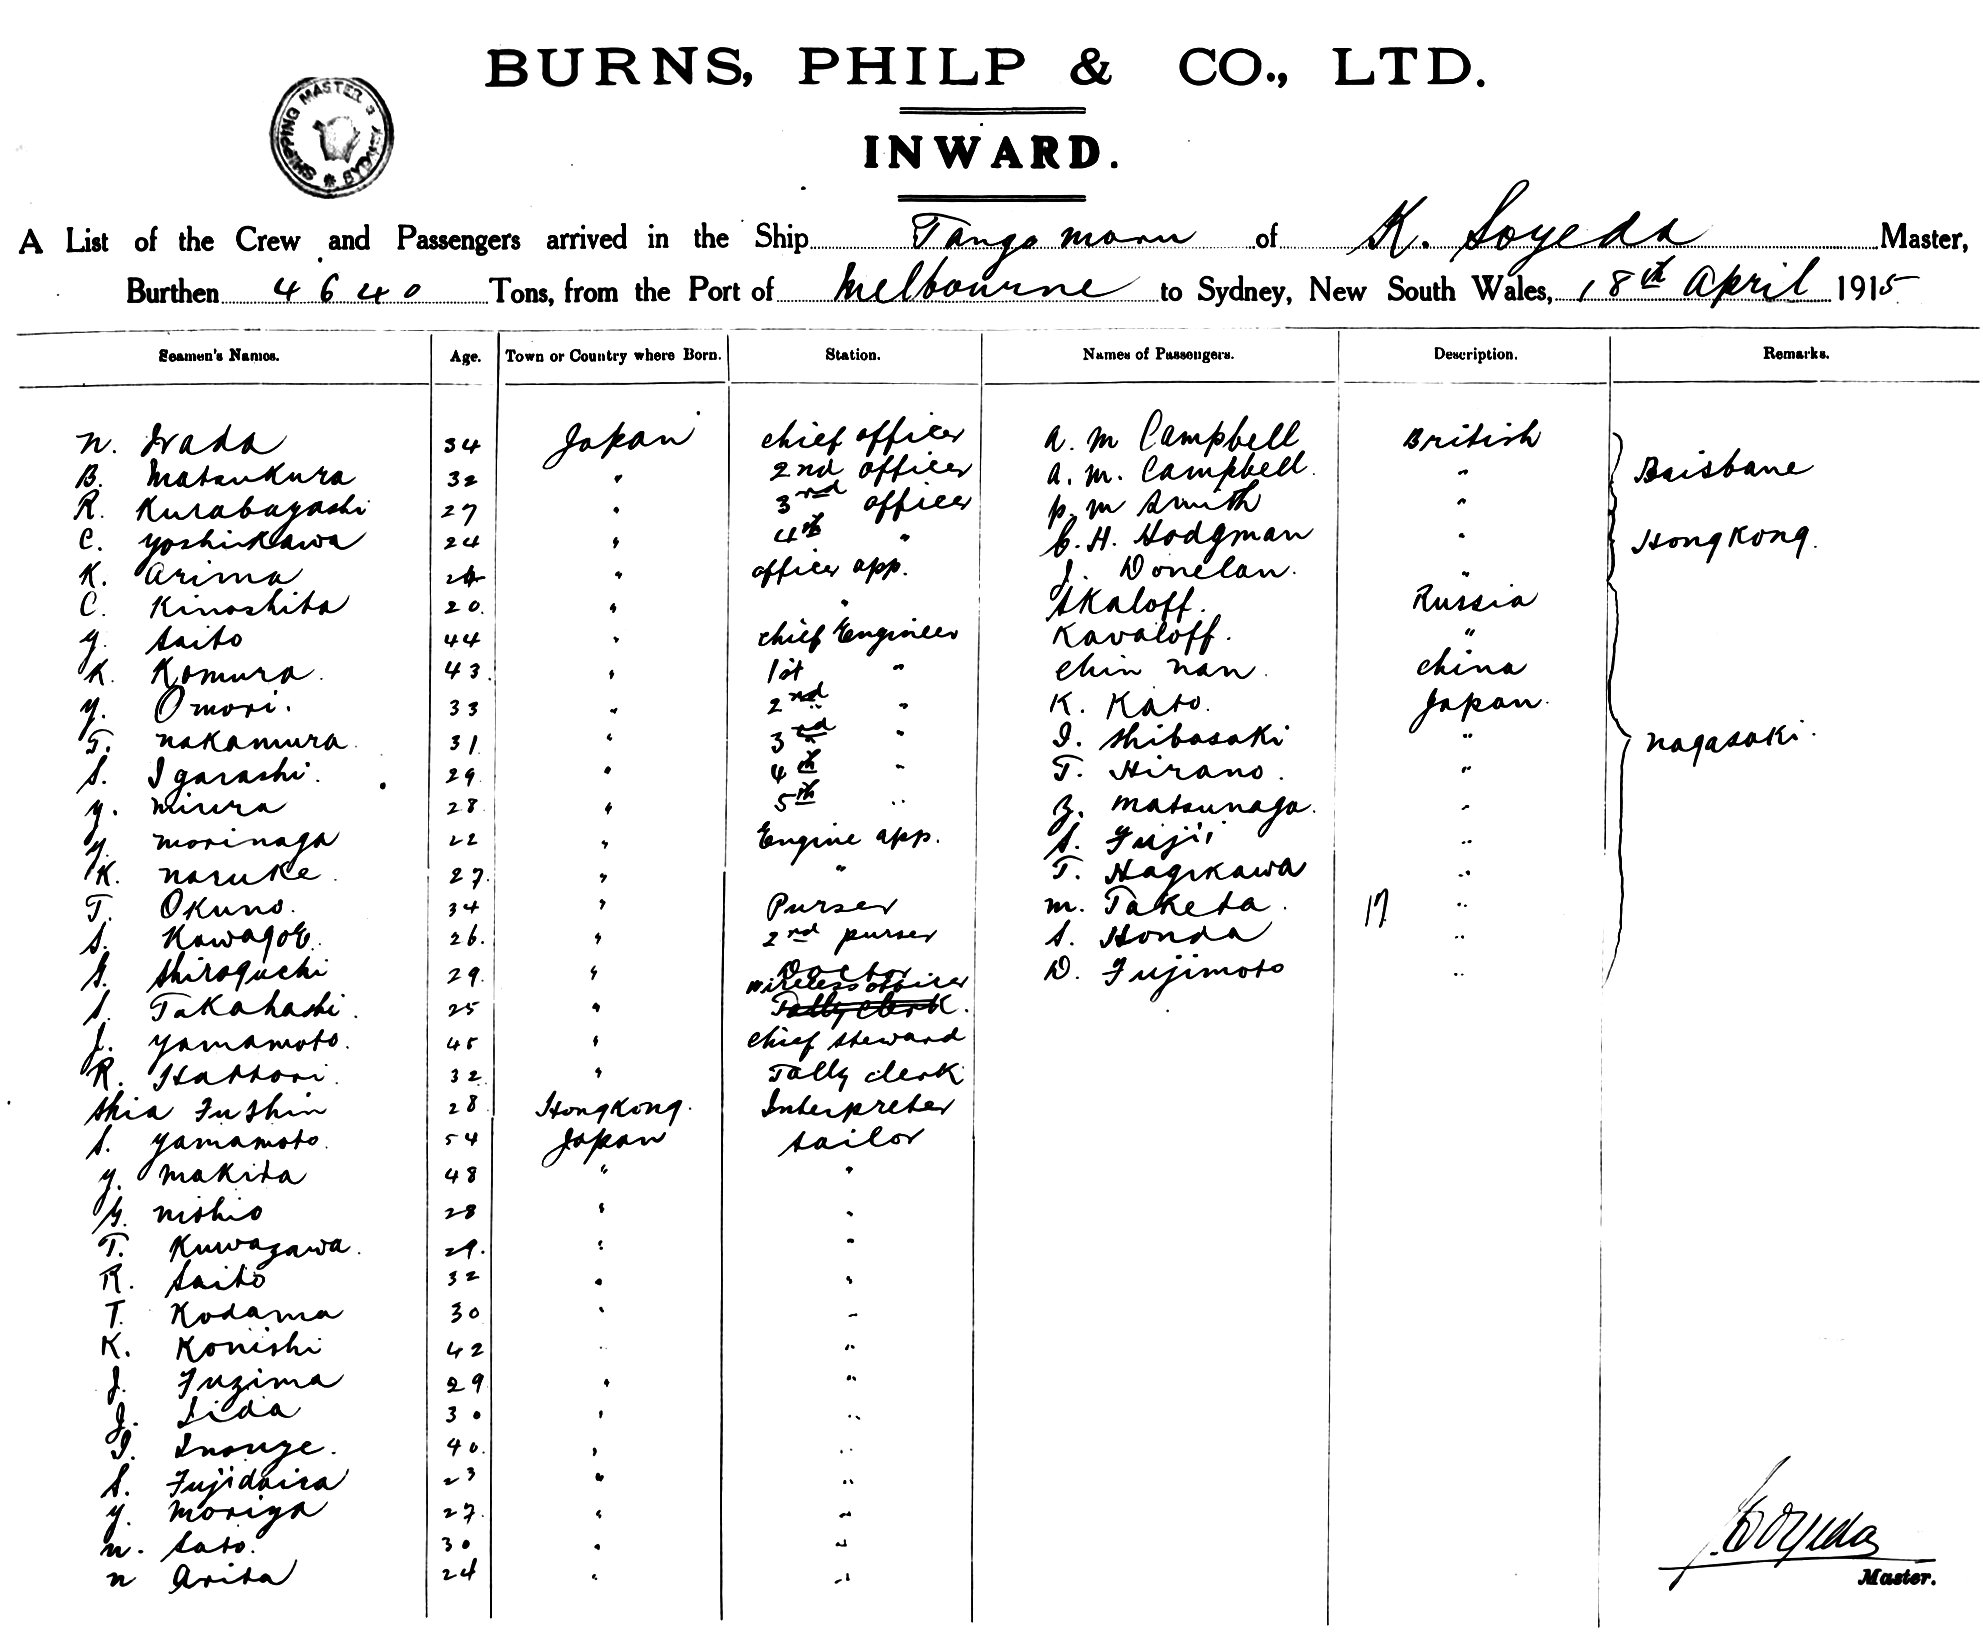 SHIPPING MASTER SYDNEY
BURNS, PHILP & CO., LTD.
INWARD.
A List of the Crew and Passengers arrived in the Ship Tango Maru of K. Soyeda Master,
Burthen 4640 Tons, from the Port of Melbourne to Sydney, New South Wales, 18th April 1915
Seamen's Names. Age. Town or Country where Born. Station. Names of Passengers. Description. Remarks.
N. Wada 34 Japan chief officer A. M Campbell British
B. Matsukura 32 " 2nd officer A. M. Campbell. " Brisbane
R. Kurabayashi 27 " 3rd officer P. M Smith "
C. Yoshikawa 24 " 4th " C. H. Hodgman " HongKong.
K. Arima 24 " officer app. J. Donelan. "
C. Kinoshita 20. " " Skaloff. Russia
Y. Saito 44 " chief Engineer Kavaloff. "
K. Komura. 43. " 1st " Chin Nan. China
Y. Omori. 33 " 2nd " K. Kato. Japan.
T. Nakamura. 31 " 3rd " I. Shibasaki " Nagasaki.
S. Igarashi. 29. " 4th " T. Hirano. "
Y. Miura 28. " 5th " Z. Matsunaga. "
Y. Morinaga 22 " Engine app. S. Fujii "
K. Naruke. 27. " " T. Hagikawa "
T. Okuno. 34 " Purser M. Taketa. 17 "
S. Kawagoe. 26. " 2nd purser S. Honda "
G. Shiroguchi 29. " Doctor D. Fujimoto "
wireless officer
S. Takahashi. 25 " Tally clerk.
J. Yamamoto. 45 " chief steward
R. Hattori. 32 " Tally clerk
Shia Fu Shin 28 HongKong. Interpreter
S. Yamamoto. 54 Japan sailor
Y. Makita 48 " "
G. Nishio 28 " "
T. Kuwazawa. 29. " "
R. Saito 32 " "
T. Kodama 30 " "
K. Konishi 42 " "
J. Fuzima 29 " "
J. Iida 30 " "
I. Inouye. 40. " "
S. Fujidaira 23 " "
Y. Moriya 27. " "
N. Sato. 30 " "
N Arita 24 " "
Soyeda
Master.